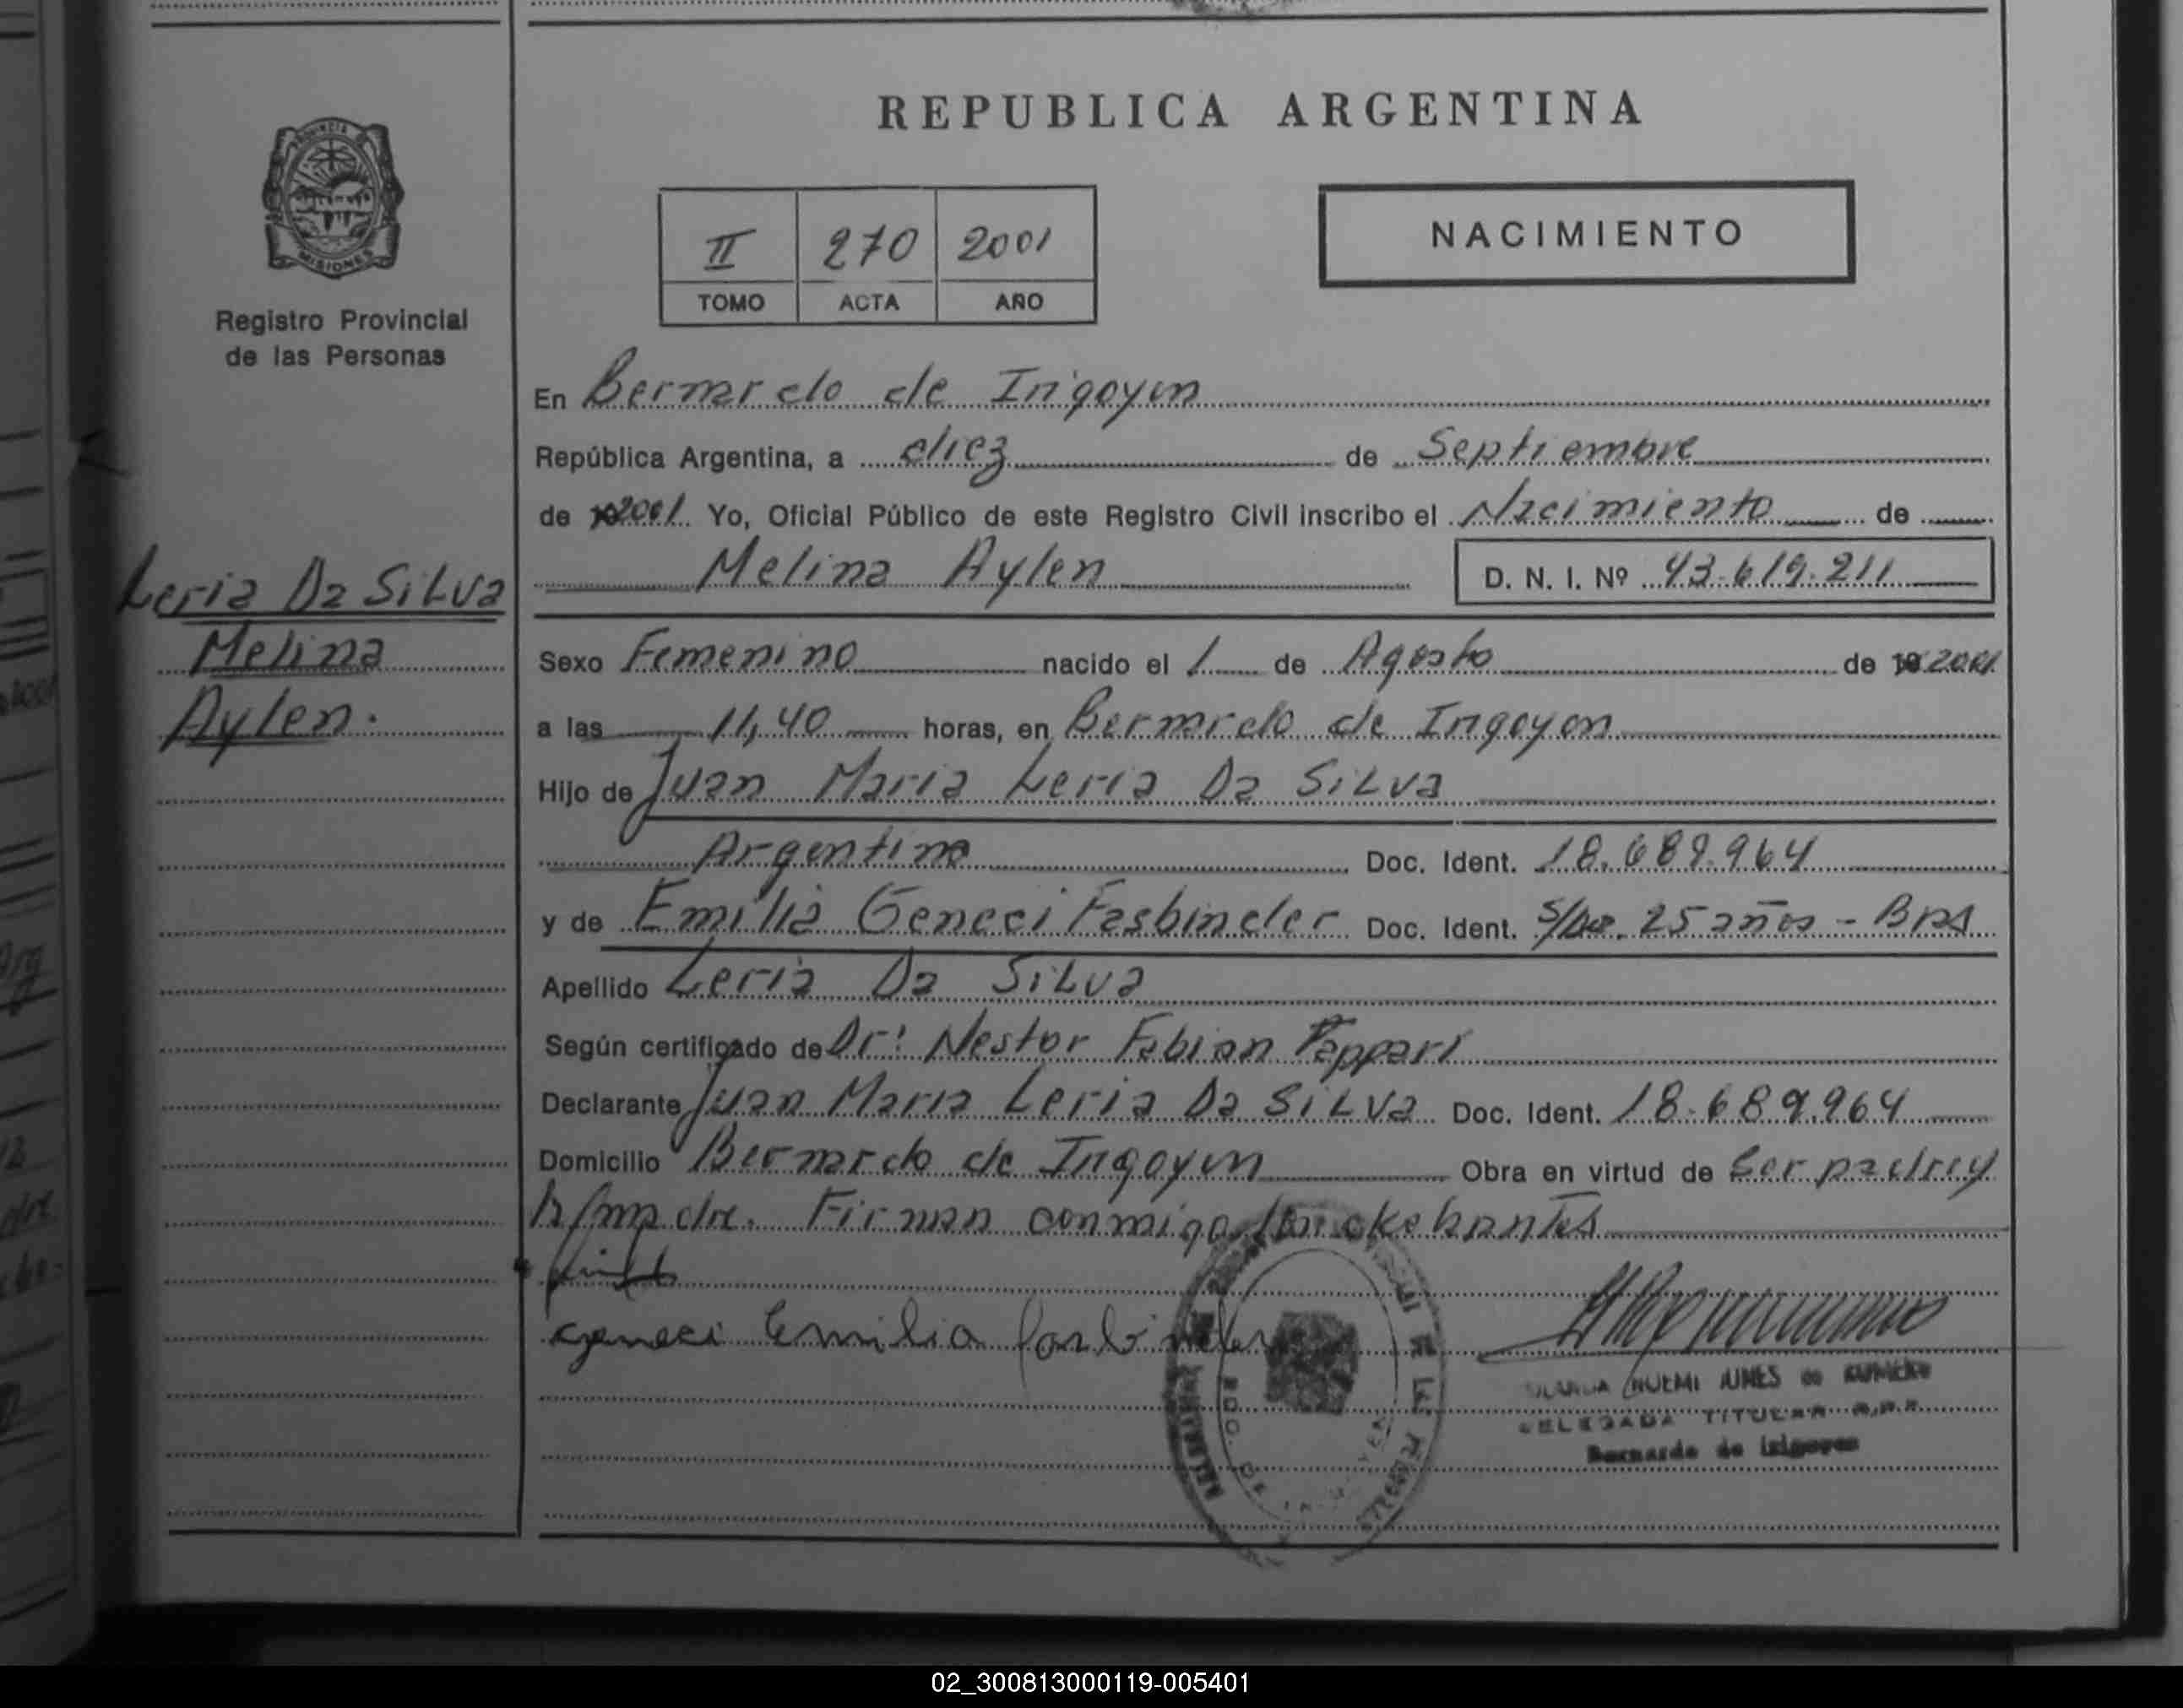 REPUBLICA ARGENTINA
PROVINCIA DE
MISIONES
Registro Provincial
de las Personas
II 270 2001
TOMO ACTA AÑO
NACIMIENTO
En Bernardo de Irigoyen
República Argentina, a diez de Septiembre
de 2001 Yo, Oficial Público de este Registro Civil inscribo el Nacimiento de
Melina Aylen D. N. I. Nº 43.619.211
Leria Da Silva
Melina
Aylen.
Sexo Femenino nacido el 1 de Agosto de 19 2001
a las 11,40 horas, en Bernardo de Irigoyen
Hijo de Juan Maria Leria Da Silva
Argentino Doc. Ident. 18.689.964
y de Emilia Geneci Fasbinder Doc. Ident. S/Doc. 25 años - Bras
Apellido Leria Da Silva
Según certificado de Dr: Nestor Fabian Pappari
Declarante Juan Maria Leria Da Silva Doc. Ident. 18.689.964
Domicilio Bernardo de Irigoyen Obra en virtud de Ser padre y
la madre. Firman conmigo los
Geneci Emilia Fasbinder
NUEMI de
DELEGADA TITULAR R.P.P.
Bernardo de Irigoyen
BDO. DE
02_300813000119-005401